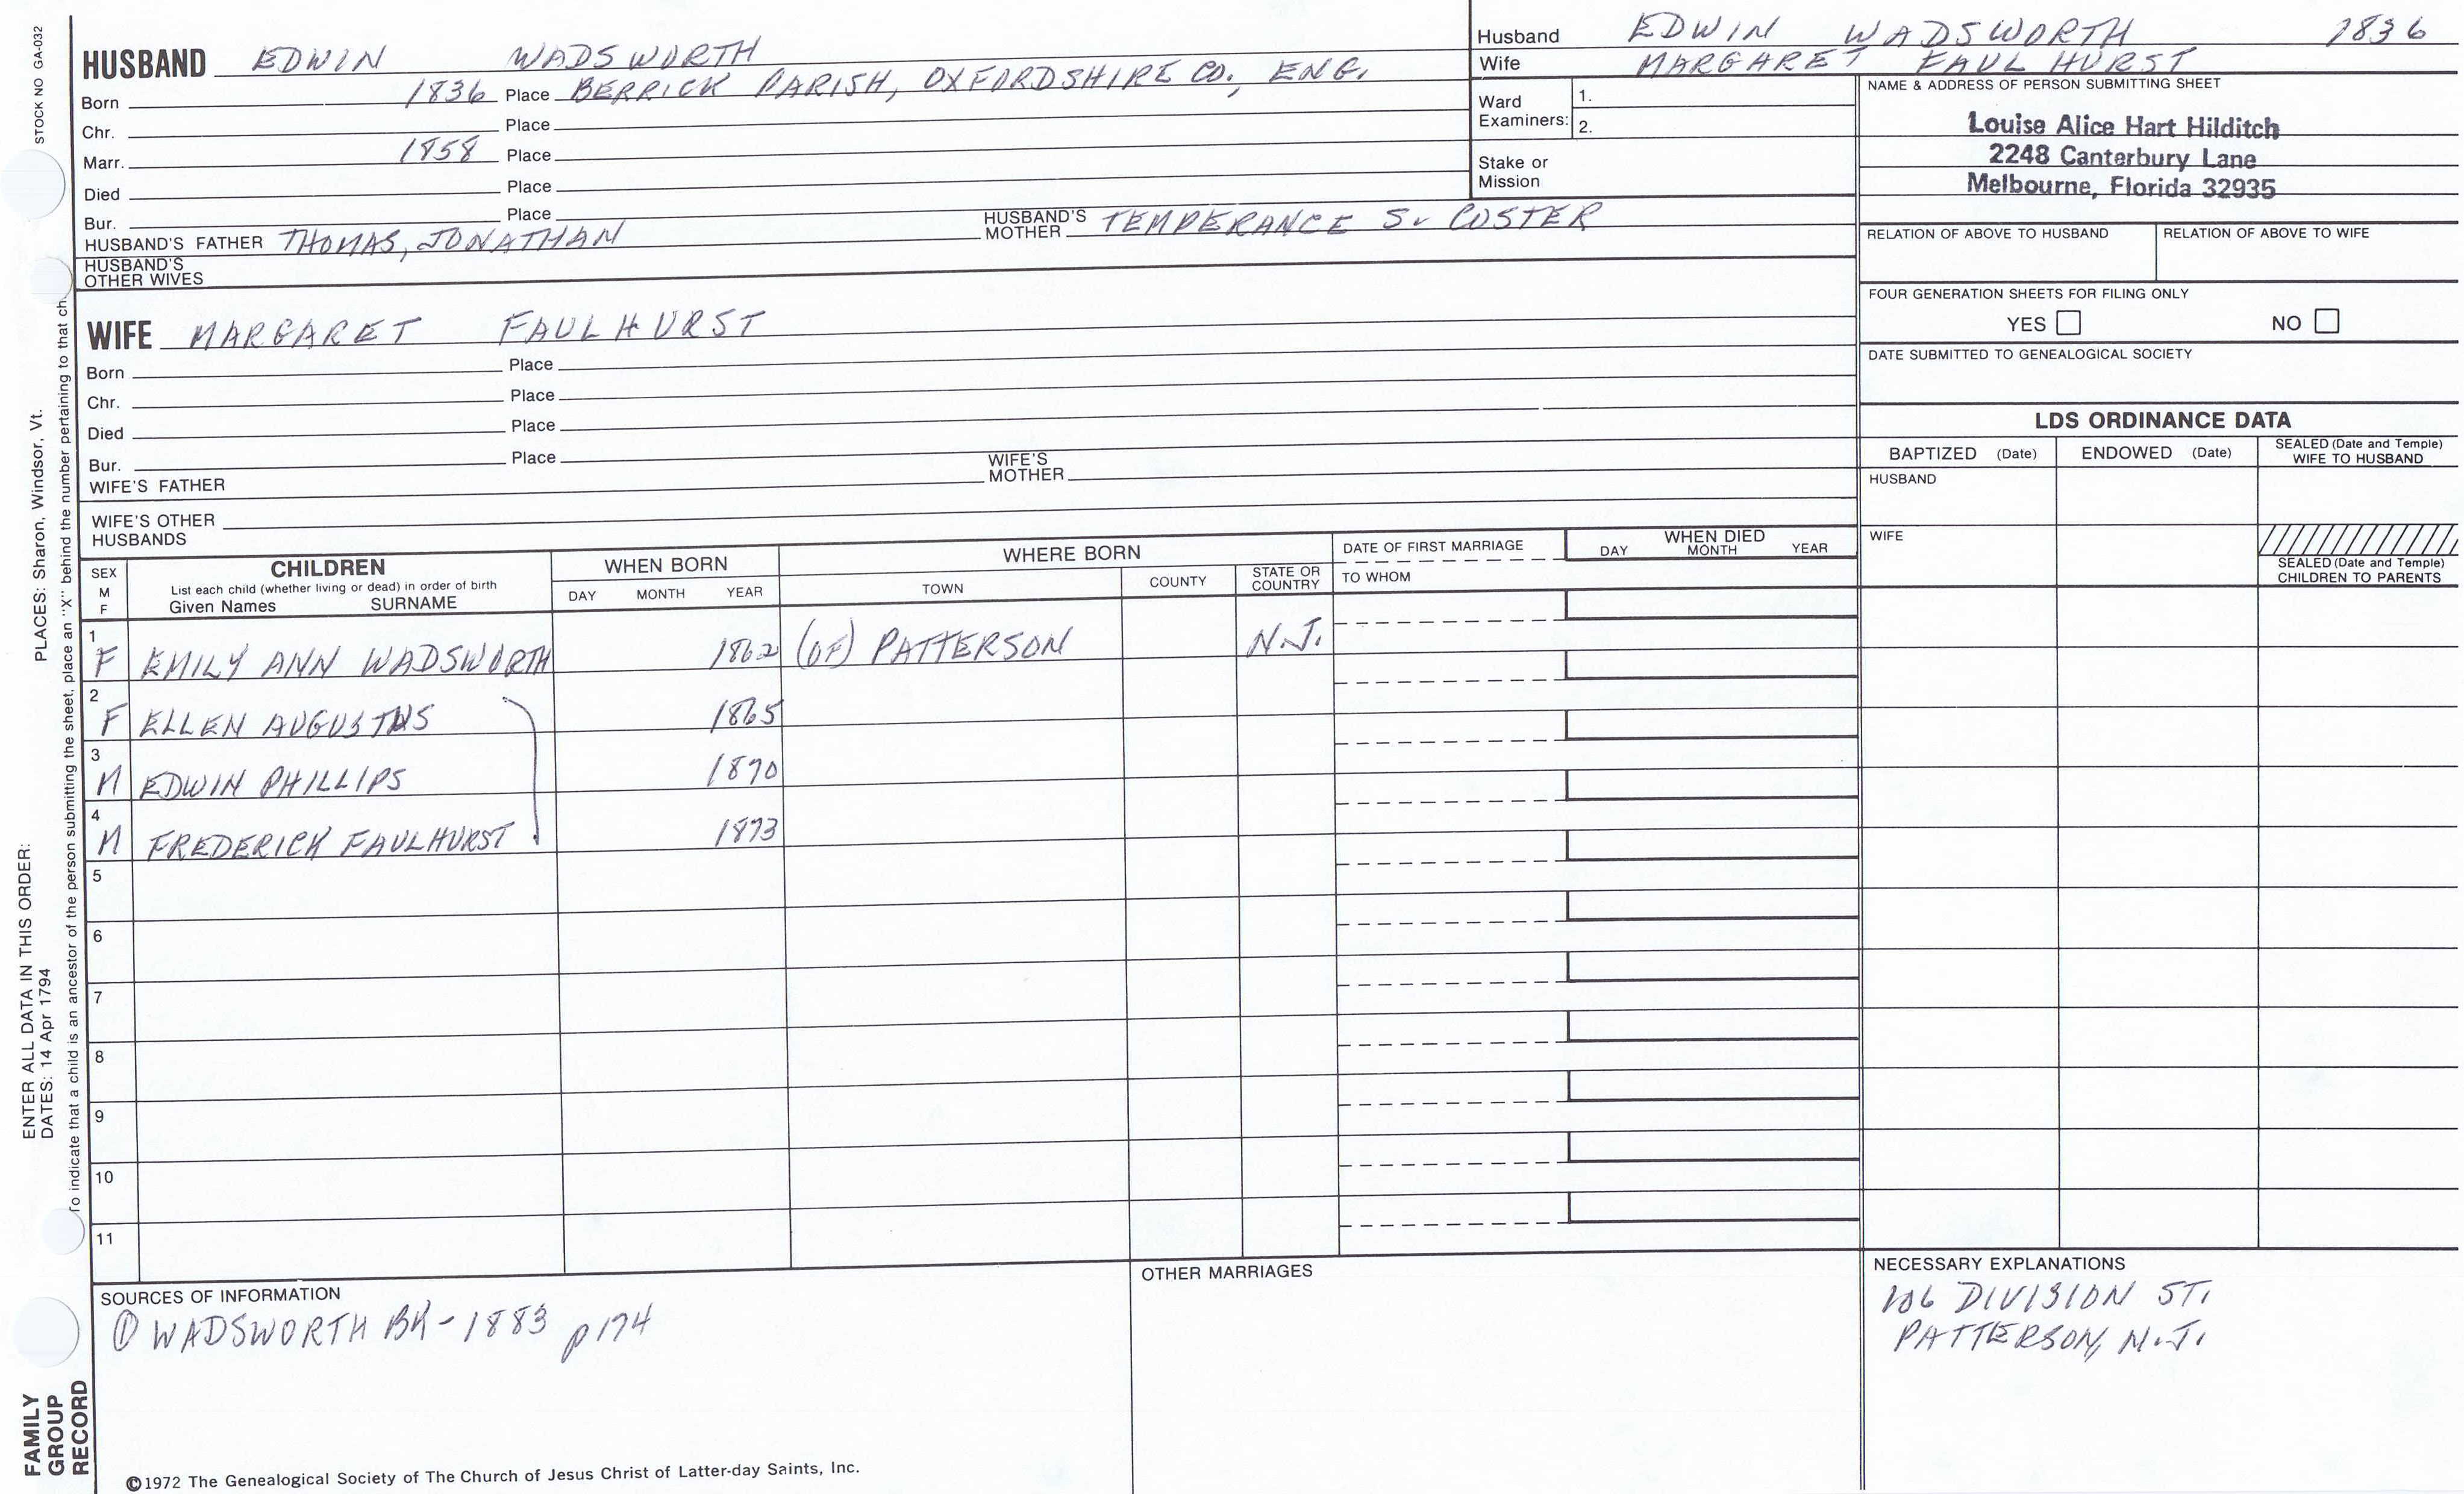 STOCK NO GA-032
HUSBAND EDWIN WADSWORTH
Born 1836 Place BERRICK PARISH, OXFORDSHIRE CO., ENG.
Chr. Place
Marr. 1858 Place
Died Place
Bur. Place
HUSBAND'S FATHER THOMAS, JONATHAN HUSBAND'S MOTHER TEMPERANCE S. COSTER
HUSBAND'S
OTHER WIVES
WIFE MARGARET FAULHURST
Born Place
Chr. Place
Died Place
Bur. Place
WIFE'S FATHER WIFE'S MOTHER
WIFE'S OTHER
HUSBANDS
Husband EDWIN WADSWORTH 1836
Wife MARGARET FAULHURST
Ward
Examiners:
1.
2.
Stake or
Mission
NAME & ADDRESS OF PERSON SUBMITTING SHEET
Louise Alice Hart Hilditch
2248 Canterbury Lane
Melbourne, Florida 32935
RELATION OF ABOVE TO HUSBAND RELATION OF ABOVE TO WIFE
FOUR GENERATION SHEETS FOR FILING ONLY
YES NO
DATE SUBMITTED TO GENEALOGICAL SOCIETY
LDS ORDINANCE DATA
BAPTIZED (Date) ENDOWED (Date) SEALED (Date and Temple) WIFE TO HUSBAND
HUSBAND
WIFE
SEALED (Date and Temple)
CHILDREN TO PARENTS
SEX
M
F
CHILDREN
List each child (whether living or dead) in order of birth
Given Names SURNAME
WHEN BORN
DAY MONTH YEAR
WHERE BORN
TOWN COUNTY STATE OR COUNTRY
DATE OF FIRST MARRIAGE
TO WHOM
WHEN DIED
DAY MONTH YEAR
1 F EMILY ANN WADSWORTH 1862 (OF) PATTERSON N.J.
2 F ELLEN AUGUSTUS 1865
3 M EDWIN PHILLIPS 1870
4 M FREDERICK FAULHURST 1873
5
6
7
8
9
10
11
SOURCES OF INFORMATION
① WADSWORTH BK - 1883 p 174
OTHER MARRIAGES
NECESSARY EXPLANATIONS
106 DIVISION ST.
PATTERSON, N.J.
©1972 The Genealogical Society of The Church of Jesus Christ of Latter-day Saints, Inc.
ENTER ALL DATA IN THIS ORDER:
DATES: 14 Apr 1794
PLACES: Sharon, Windsor, Vt.
To indicate that a child is an ancestor of the person submitting the sheet, place an "X" behind the number pertaining to that ch
FAMILY
GROUP
RECORD